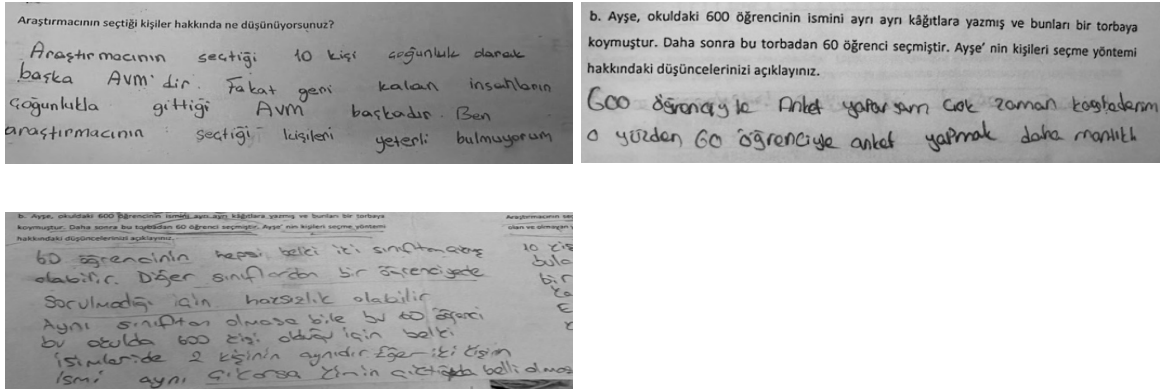 Araştırmacının seçtiği kişiler hakkında ne düşünüyorsunuz?
Araştırmacının seçtiği 10 kişi çoğunluk olarak
başka AVM'dir. Fakat geri kalan insanların
çoğunlukla gittiği AVM başkadır. Ben
araştırmacının seçtiği kişileri yeterli bulmuyorum
b. Ayşe, okuldaki 600 öğrencinin ismini ayrı ayrı kâğıtlara yazmış ve bunları bir torbaya
koymuştur. Daha sonra bu torbadan 60 öğrenci seçmiştir. Ayşe' nin kişileri seçme yöntemi
hakkındaki düşüncelerinizi açıklayınız.
600 öğrenciyle Anket yaparsam çok zaman
o yüzden 60 öğrenciyle anket yapmak daha mantıklı
b. Ayşe, okuldaki 600 öğrencinin ismini ayrı ayrı kâğıtlara yazmış ve bunları bir torbaya
koymuştur. Daha sonra bu torbadan 60 öğrenci seçmiştir. Ayşe' nin kişileri seçme yöntemi
hakkındaki düşüncelerinizi açıklayınız.
60 öğrencinin hepsi belki iki sınıftan
olabilir. Diğer sınıflardan bir öğrenciyede
Sorulmadığı için olabilir
Aynı sınıftan olmasa bile bu 60 öğrenci
bu okulda 600 kişi olduğu için belki
isimleride 2 kişinin aynıdır Eğer iki kişinin
ismi aynı çıkarsa kimin çıktığıda belli olmaz
Araştırmacının
olan ve olmayan
10 kiş
bula
bir